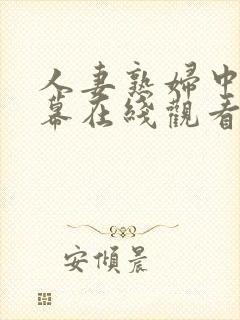 人妻熟婦中
幕在綫觀看
安傾晨